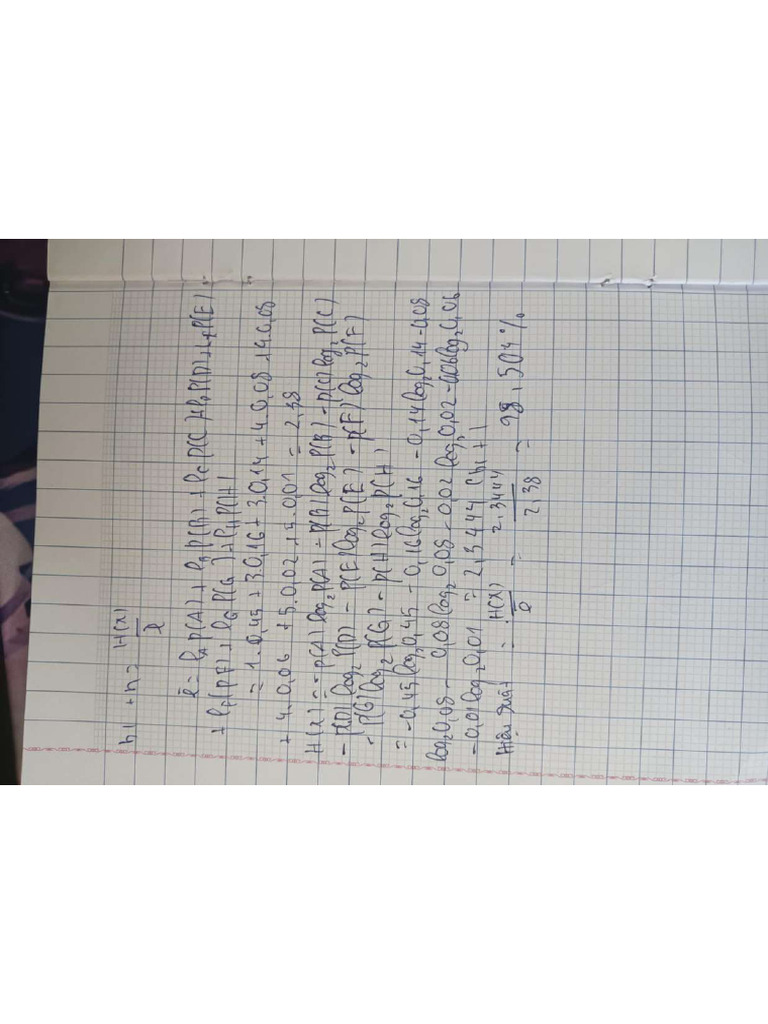 b) + h = H(X) / l̄
l̄ = l_A P(A) + l_B P(B) + l_C P(C) + l_D P(D) + l_E P(E)
+ l_F P(F) + l_G P(G) + l_H P(H)
= 1.0,45 + 3.0,16 + 3.0,14 + 4.0,08 + 4.0,08
+ 4.0,06 + 5.0,02 + 5.0,01 = 2,38
H(X) = -P(A) log₂ P(A) - P(B) log₂ P(B) - P(C) log₂ P(C)
- P(D) log₂ P(D) - P(E) log₂ P(E) - P(F) log₂ P(F)
- P(G) log₂ P(G) - P(H) log₂ P(H)
= -0,45 log₂ 0,45 - 0,16 log₂ 0,16 - 0,14 log₂ 0,14 - 0,08
log₂ 0,08 - 0,08 log₂ 0,08 - 0,02 log₂ 0,02 - 0,06 log₂ 0,06
- 0,01 log₂ 0,01 = 2,3444 (bit)
Hiệu suất = H(X) / l̄ = 2,3444 / 2,38 = 98,504%